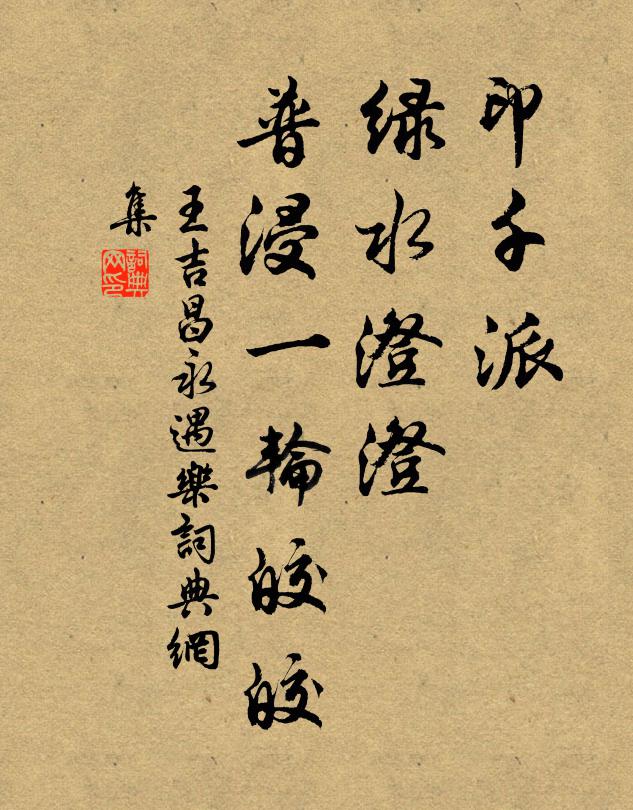 印千派
绿水澄澄
普浸一輪皎皎
王吉昌永遇樂詞典網
集
詞典
网印